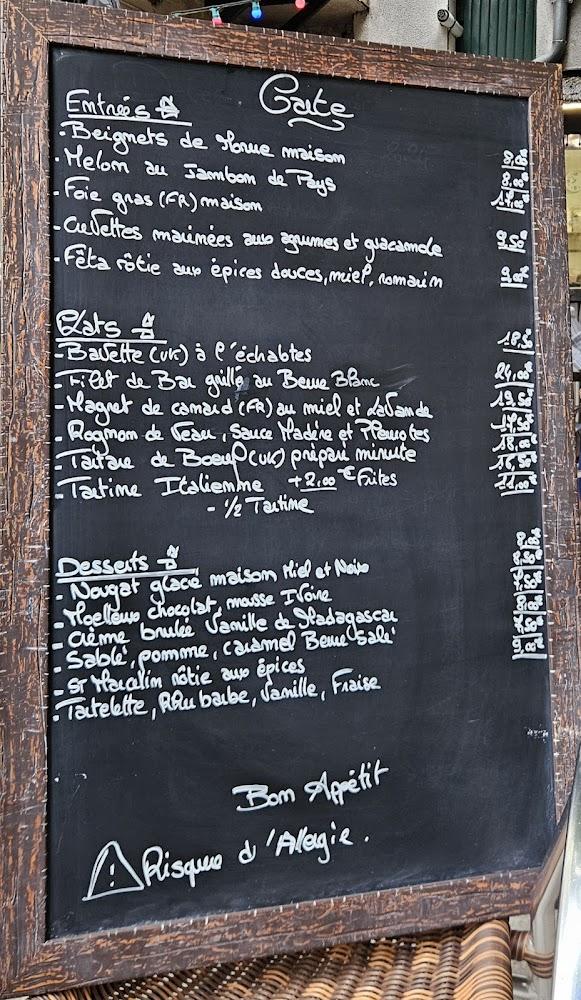 Carte
Entrées
- Beignets de Morue maison 8,00
- Melon au Jambon de Pays 8,00
- Foie gras (FR) maison 17,00
- Crevettes marinées aux agrumes et guacamole 9,50
- Fêta rôtie aux épices douces, miel, romarin 9,00
Plats
- Bavette (UK) à l'échalotes 18,50
- Filet de Bar grillé au Beurre Blanc 24,00
- Magret de canard (FR) au miel et Lavande 19,50
- Rognon de Veau, Sauce Madère et Pleurotes
- Tartare de Boeuf (UK) préparé minute 18,00
- Tartine Italienne +2,00€ Frites 16,50
- 1/2 Tartine 11,00
Desserts
- Nougat glacé maison Miel et Noix
- Moelleux chocolat, mousse Ivoire
- Crème brulée Vanille de Madagascar
- Sablé, pomme, caramel Beurre Salé
- St Marcellin rôtie aux épices
- Tartelette, Rhubarbe, Vanille, Fraise
Bon Appétit
Risque d'Allergie.